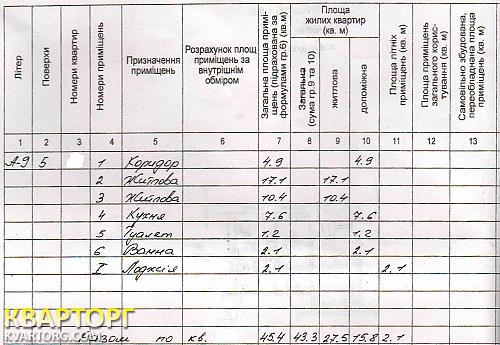 Літер
Поверхи
Номери квартир
Номери приміщень
Призначення приміщень
Розрахунок площ приміщень за внутрішнім обміром
Загальна площа приміщень (підрахована за формулами гр.6) (кв.м)
Загальна (сума гр.9 та 10)
Площа жилих квартир (кв. м)
житлова
допоміжна
Площа літніх приміщень (кв. м)
Площа приміщень загального користування (кв. м)
Самовільно збудована, переобладнана площа приміщень (кв. м)
1 2 3 4 5 6 7 8 9 10 11 12 13
А-9 5 1 Коридор 4.9 4.9
2 Житлова 17.1 17.1
3 Житлова 10.4 10.4
4 Кухня 7.6 7.6
5 Туалет 1.2 1.2
6 Ванна 2.1 2.1
I Лоджія 2.1 2.1
Разом по кв. 45.4 43.3 27.5 15.8 2.1
КВАРТОРГ
KVARTORG.COM